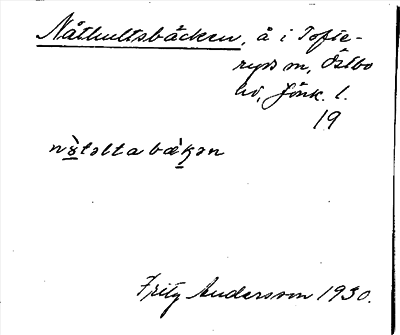 Nåthultsbäcken, å i Tofte-
ryds sn, Östbo
hd, Jönk. l.
19
nòtəltabæ̀kən
Fritz Andersson 1930.